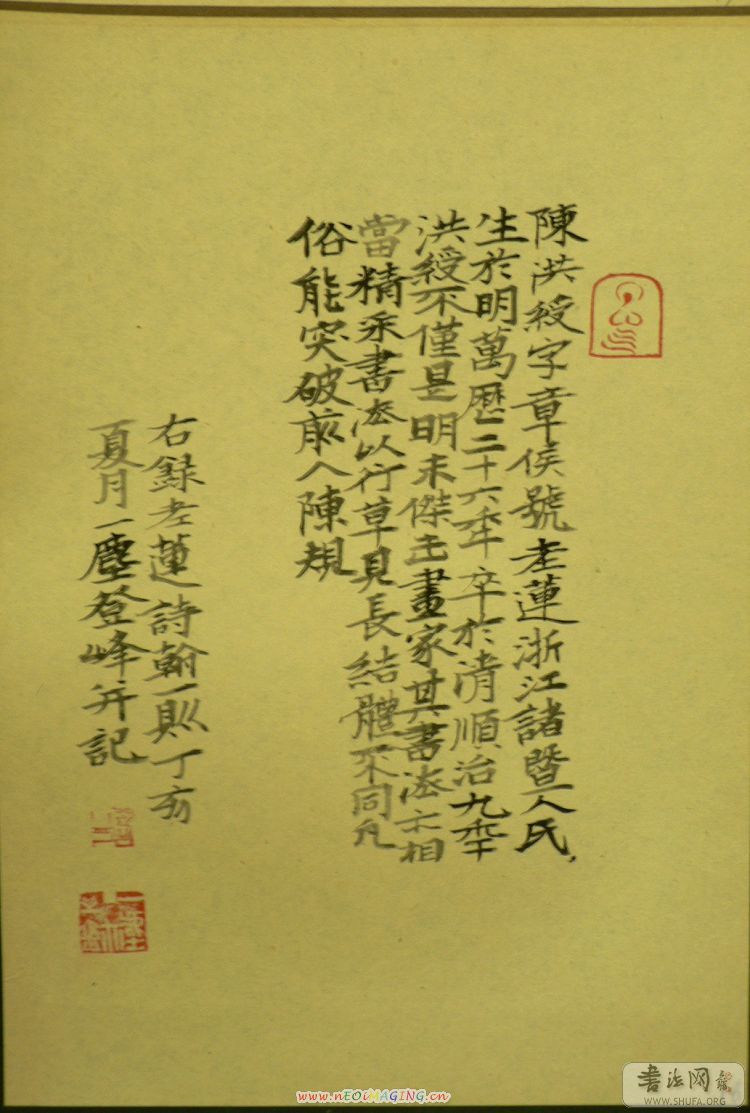 陳洪綬字章侯號老蓮浙江諸暨人氏,
生於明萬歷二十六年卒於清順治九年
洪綬不僅是明末傑出畫家其書法亦相
當精采書法以行草見長結體不同凡
俗能突破前人陳規
右録老蓮詩翰一則丁亥
夏月一塵登峰并記
www.nEOiMAGING.cn
書法网
WWW.SHUFA.ORG